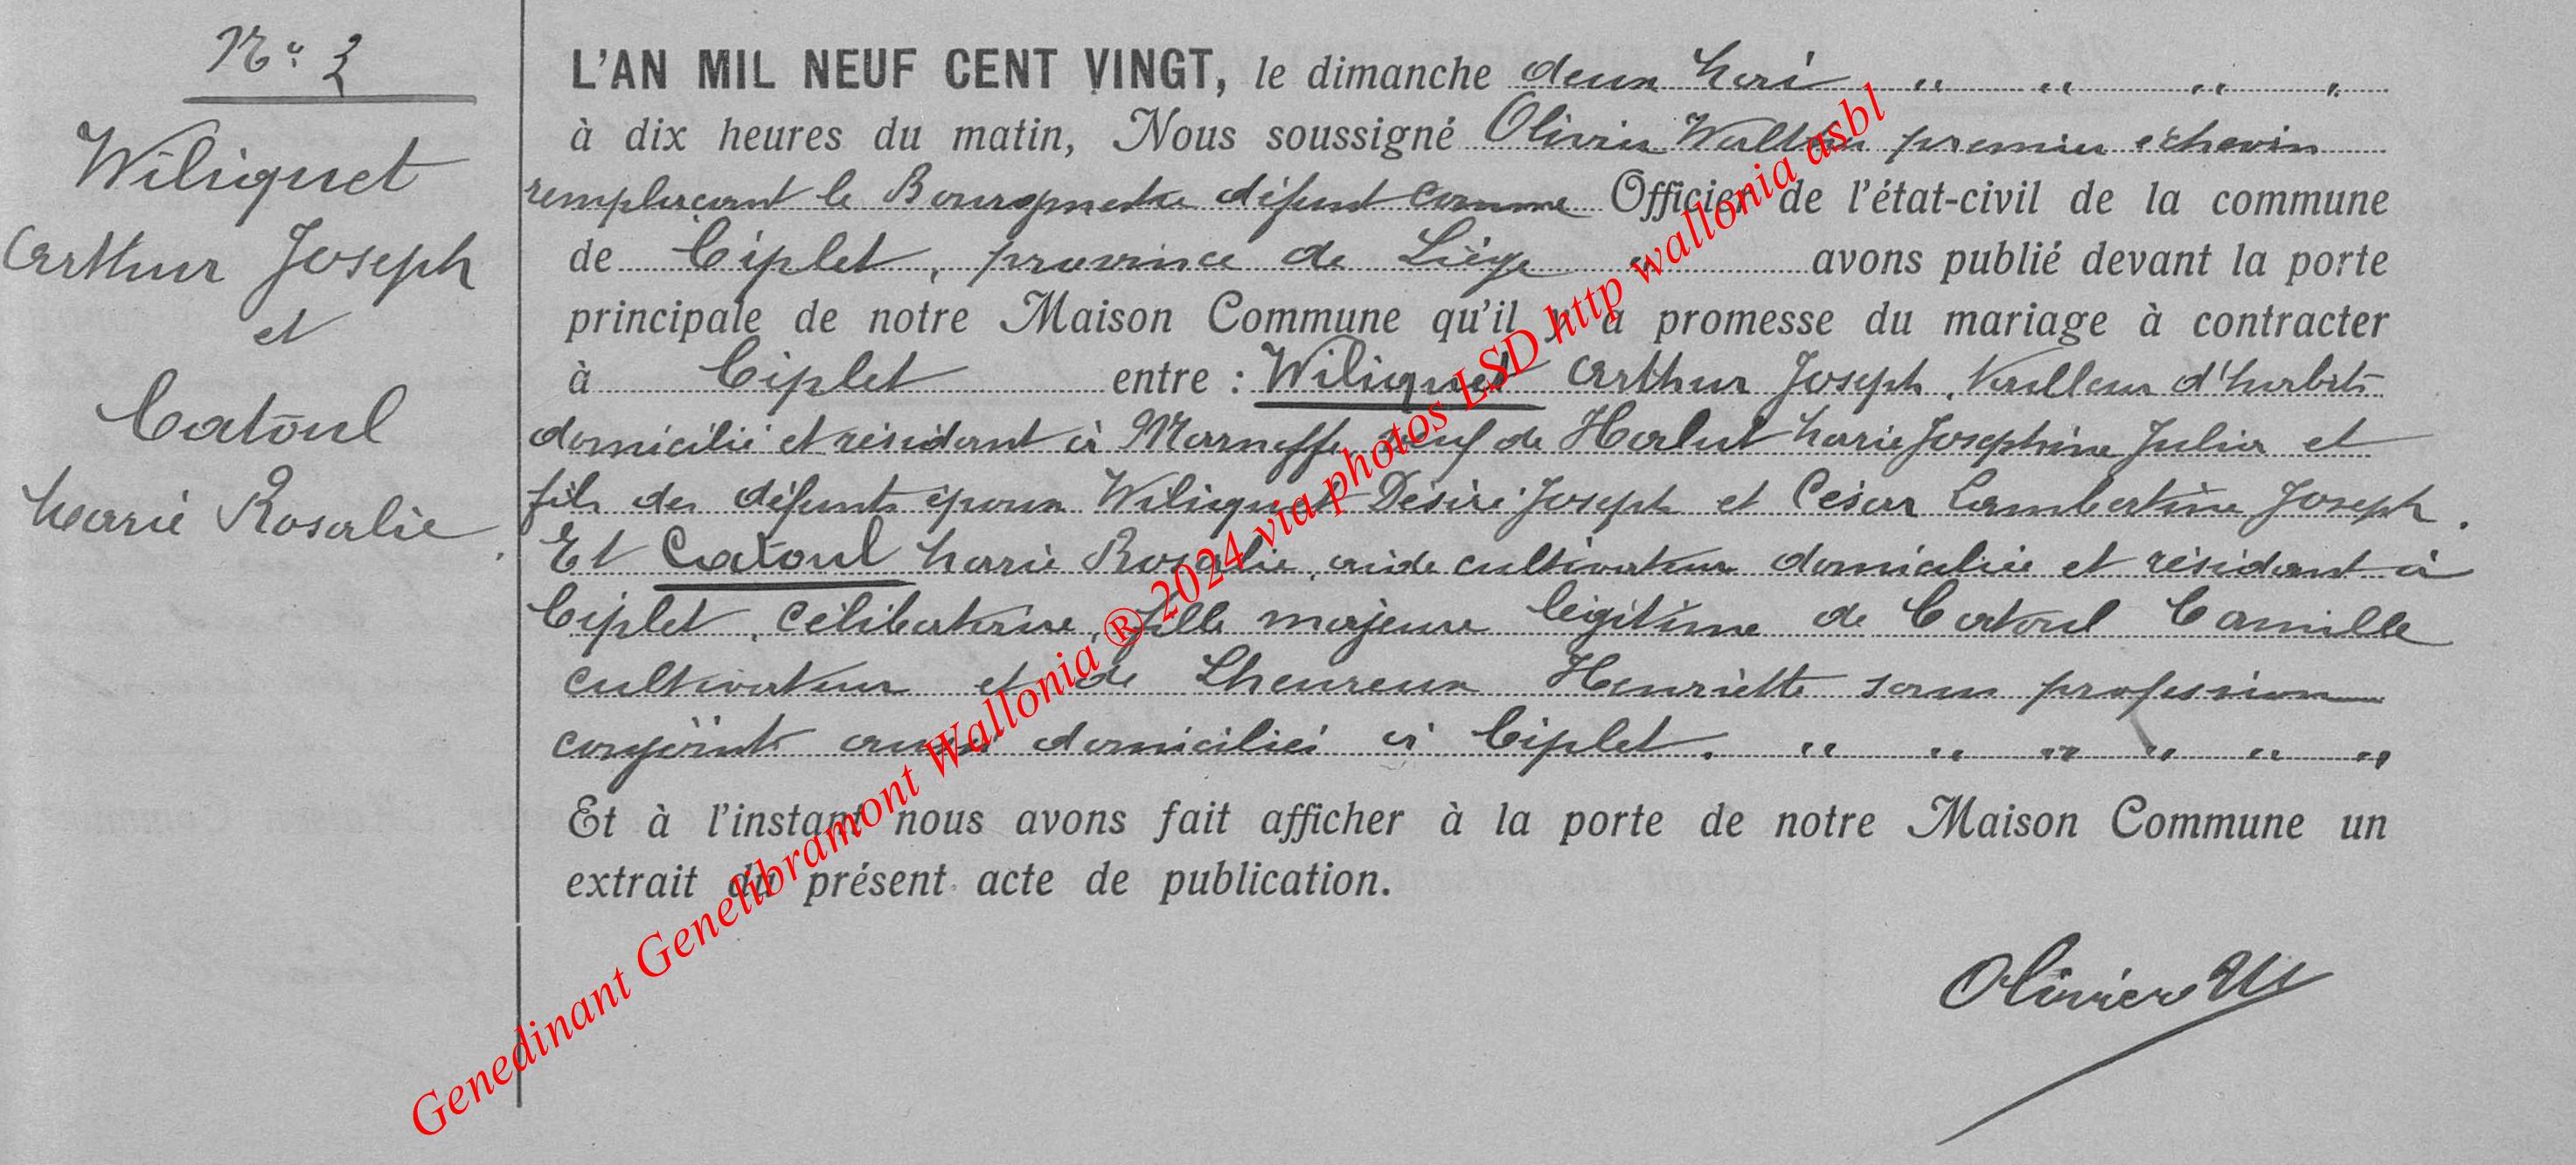 Nº 3
Wiliquet
Arthur Joseph
et
Catoul
Marie Rosalie
L'AN MIL NEUF CENT VINGT, le dimanche deux Mai " " " "
à dix heures du matin, Nous soussigné Olivier premier échevin
remplaçant le Bourgmestre défunt comme Officier de l'état-civil de la commune
de Ciplet, province de Liège " avons publié devant la porte
principale de notre Maison Commune qu'il y a promesse du mariage à contracter
à Ciplet entre : Wiliquet Arthur Joseph, tailleur d'habits
domicilié et résidant à Marneffe veuf de Marie Josephine Julia et
fils des défunts époux Wiliquet Désiré Joseph et César Lambertine Joseph.
Et Catoul Marie Rosalie, aide cultivateur domiciliée et résidant à
Ciplet, célibataire, fille majeure légitime de Catoul Camille
cultivateur et de Lheureux Henriette sans profession
conjoints aussi domiciliés à Ciplet. " " " " " "
Et à l'instant nous avons fait afficher à la porte de notre Maison Commune un
extrait du présent acte de publication.
Olivier W
Genedinant Genelibramont Wallonia ® 2024 via photos LSD http wallonia asbl